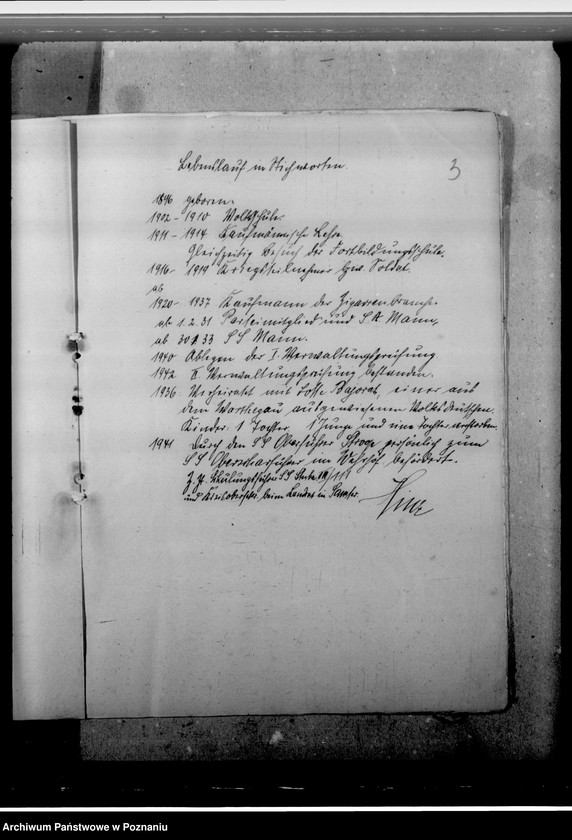 Lebenslauf in Stichworten.
3
1896 geboren.
1902 - 1910 Volksschule.
1911 - 1914 Kaufmännische Lehre.
Gleichzeitig Besuch der Fortbildungsschule.
1916 - 1919 Kriegsteilnehmer Soldat.
ab
1920 - 1937 Kaufmann der Zigarrenbranche.
ab 1.2.31 Parteimitglied und S A Mann,
ab 30.1.33 S S Mann.
1940 Ablegen der I. Verwaltungsprüfung
1942 II. Verwaltungsprüfung bestanden.
1926 Verheiratet mit einer aus
dem Warthegau ausgewiesenen Volksdeutschen.
Kinder: 1 Tochter. 1 Junge und eine Tochter verstorben.
1941 Durch den S S Oberführer persönlich zum
S S Oberscharführer im befördert.
Z. Zt. Schulungsführer S S
und beim Landrat in Samter.